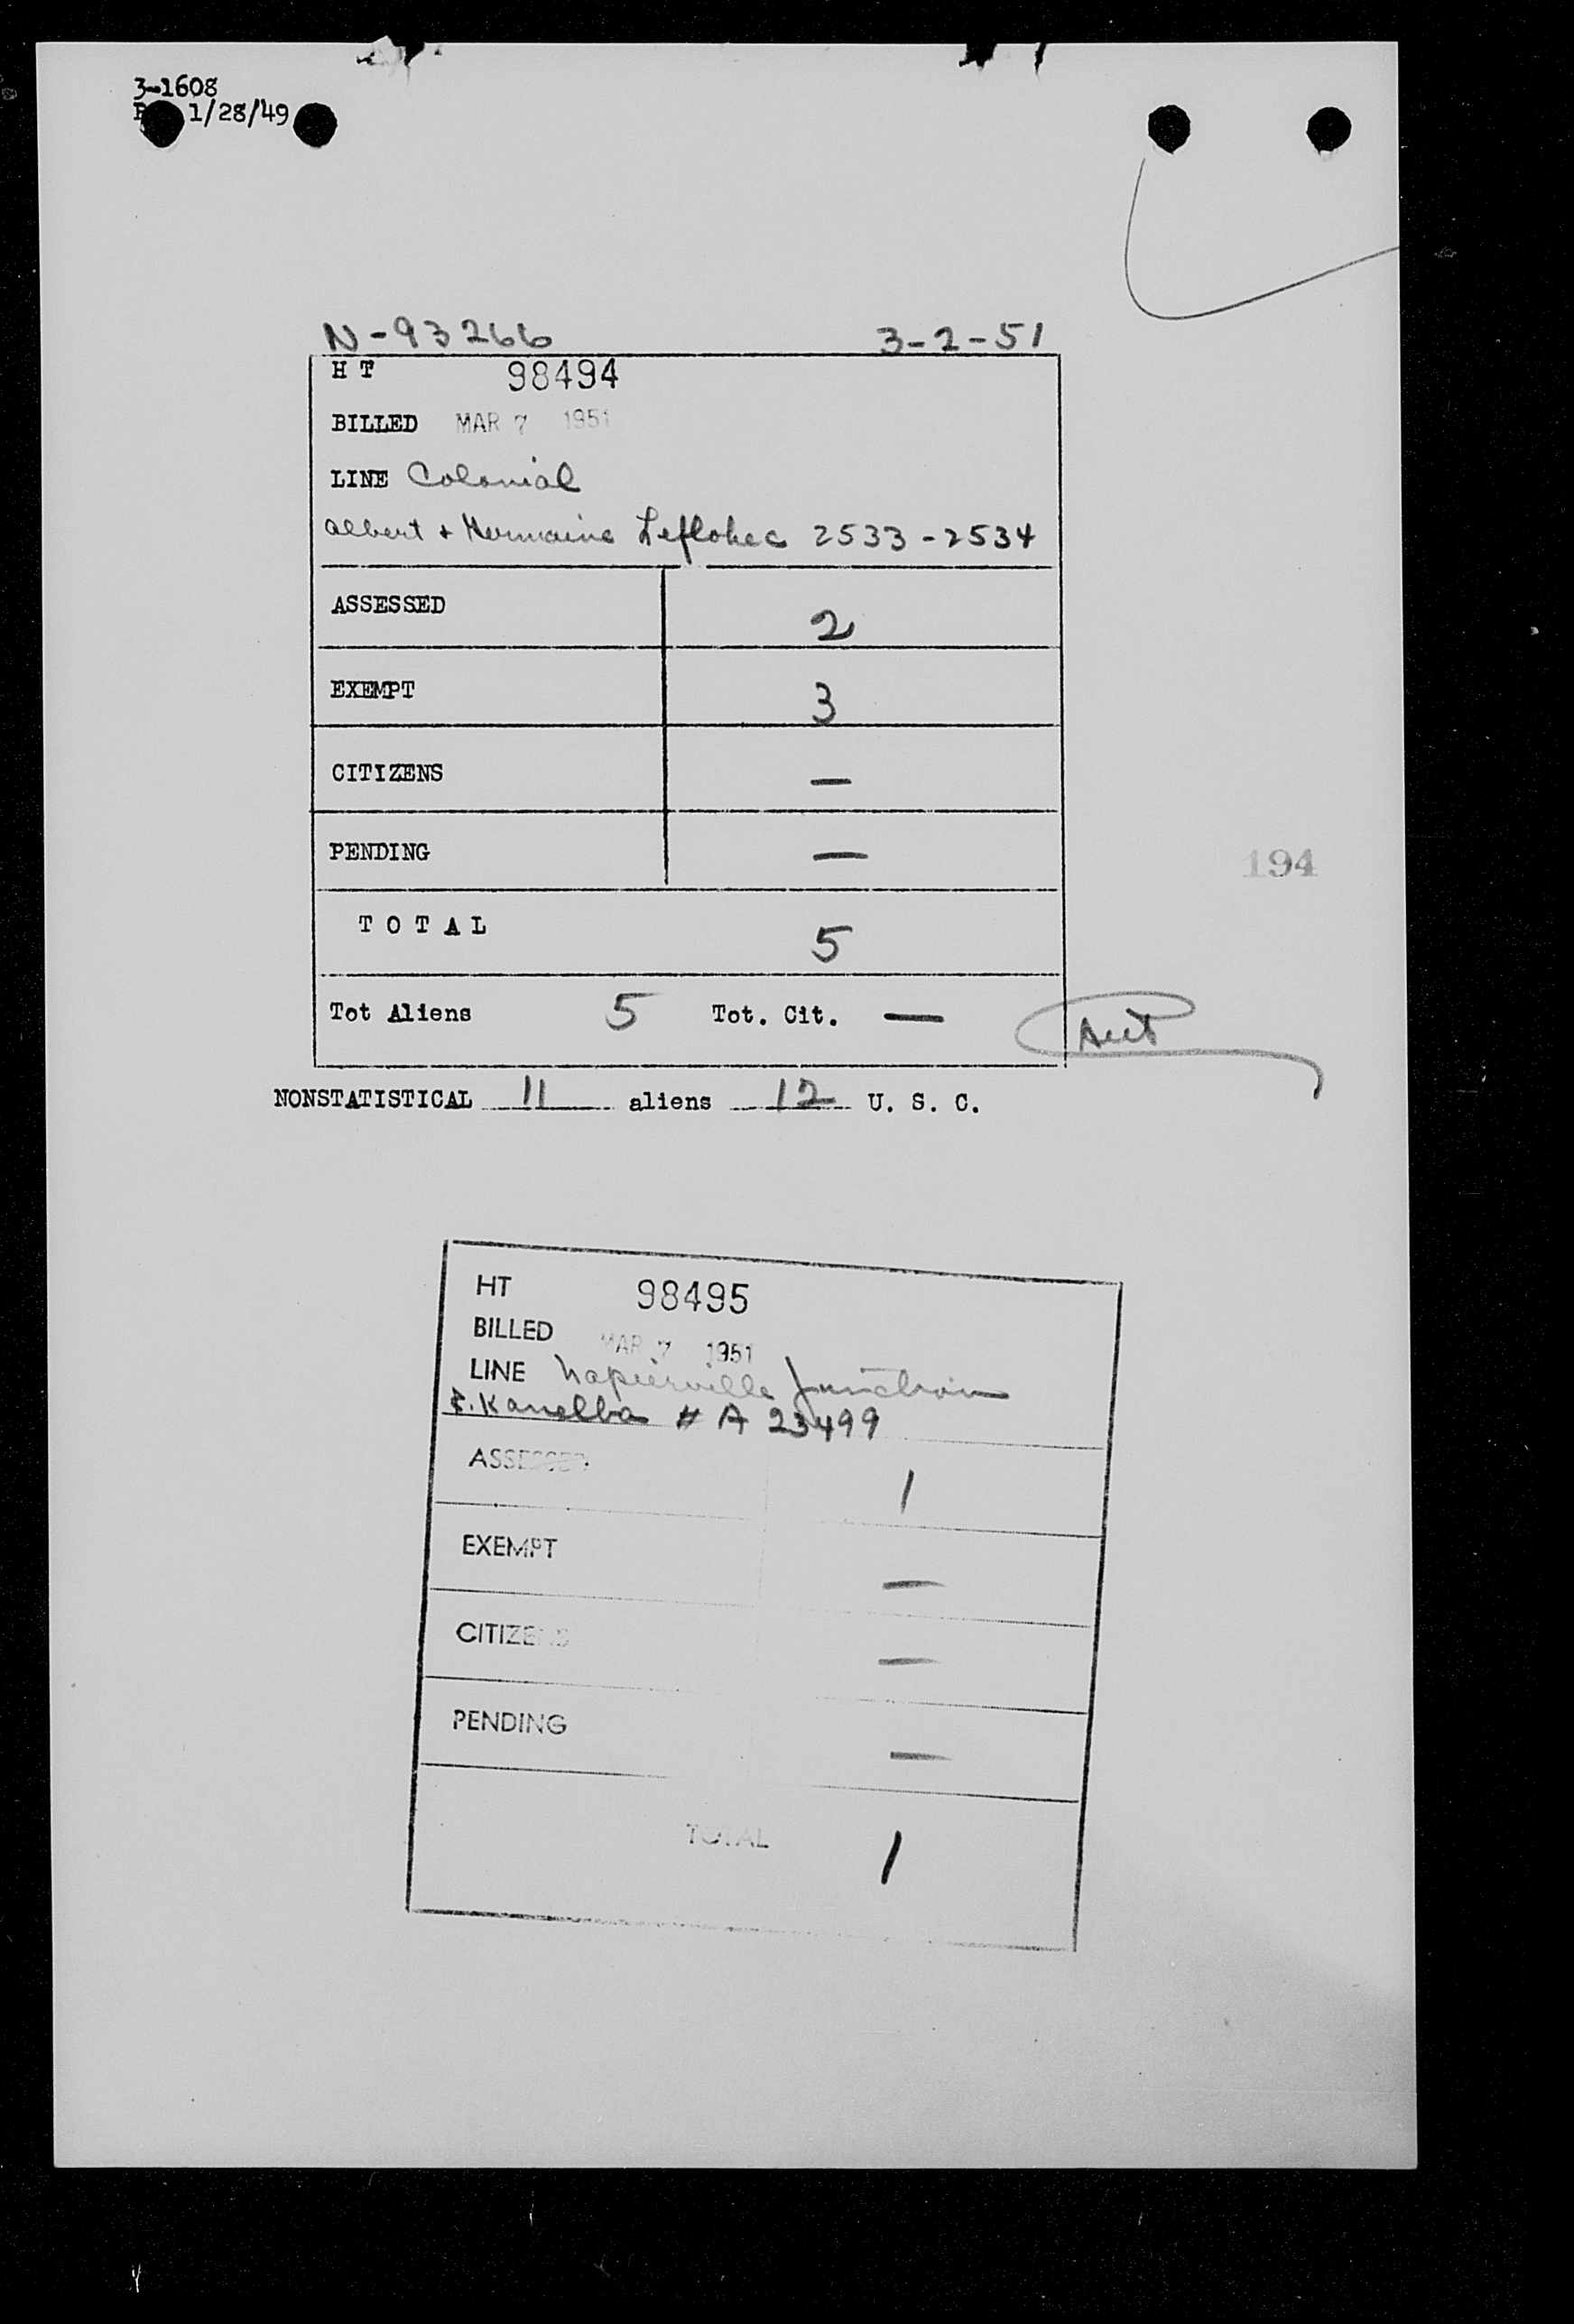 3-1608
1/28/49
N-93266 3-2-51
H T 98494
BILLED MAR 7 1951
LINE Colonial
Albert + Leflohec 2533-2534
ASSESSED 2
EXEMPT 3
CITIZENS —
PENDING —
194
T O T A L 5
Tot Aliens 5 Tot. Cit. —
NONSTATISTICAL 11 aliens 12 U. S. C.
HT 98495
BILLED MAR 7 1951
LINE Napierville Junction
E. Kanelba # A 23499
ASSESSED 1
EXEMPT —
CITIZENS —
PENDING —
TOTAL 1